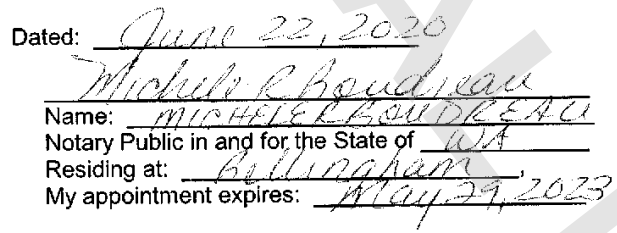 Dated: June 22, 2020
Michele R Boudreau
Name: MICHELE R BOUDREAU
Notary Public in and for the State of WA
Residing at: Bellingham,
My appointment expires: May 29, 2023